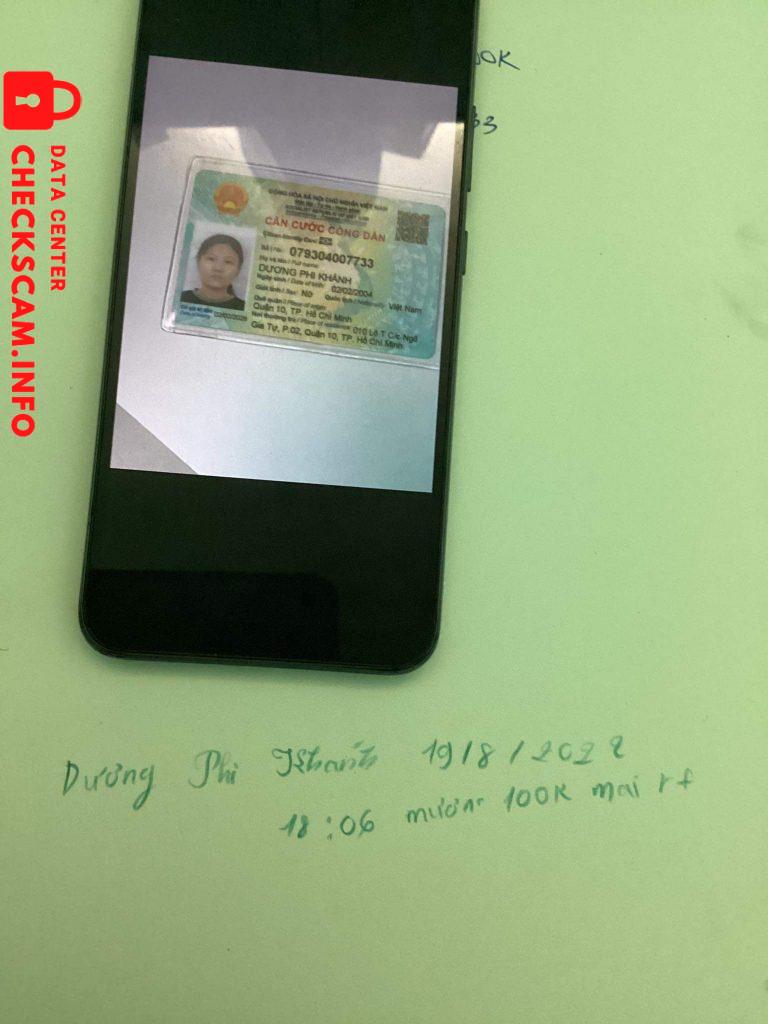 00K
33
CỘNG HÒA XÃ HỘI CHỦ NGHĨA VIỆT NAM
Độc lập - Tự do - Hạnh phúc
CĂN CƯỚC CÔNG DÂN
Citizen Identity Card
Số / No.: 079304007733
Họ và tên / Full name:
DƯƠNG PHI KHÁNH
Ngày sinh / Date of birth: 02/02/2004
Giới tính / Sex: Nữ Quốc tịch / Nationality: Việt Nam
Quê quán / Place of origin:
Quận 10, TP. Hồ Chí Minh
Nơi thường trú / Place of residence: 010 Lô T C/c Ngô
Gia Tự, P.02, Quận 10, TP. Hồ Chí Minh
DATA CENTER
CHECKSCAM.INFO
Dương Phi Khánh 19/8/2022
18:06 mượn 100K mai rt